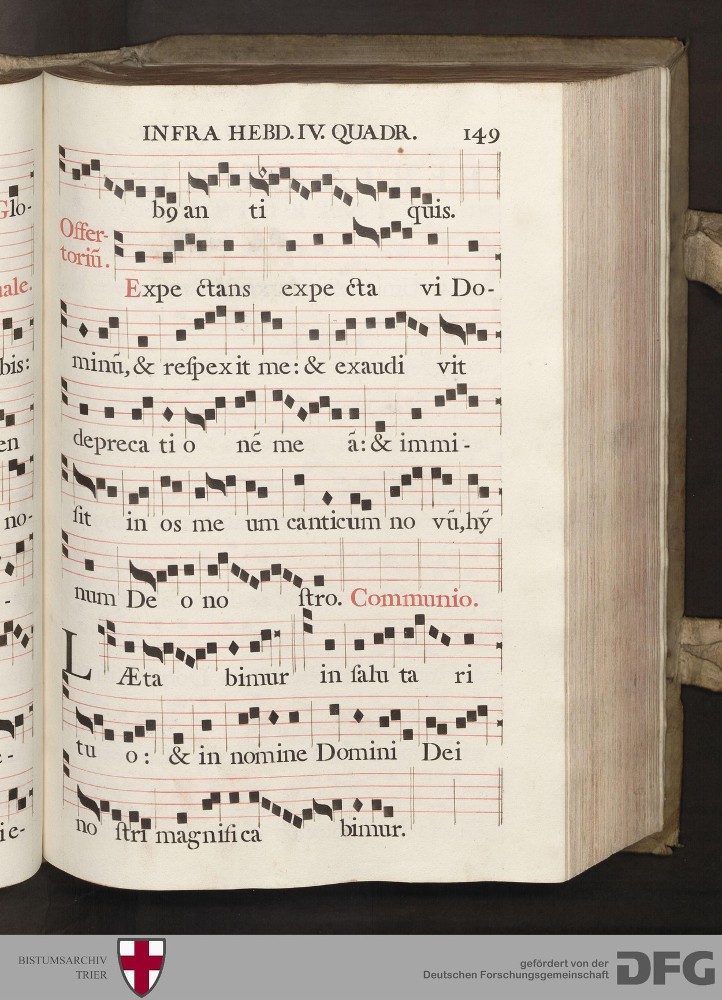 INFRA HEBD. IV. QUADR. 149
Glo-
b9 an ti quis.
Offer-
toriũ.
Expe ctans expe cta vi Do-
ale.
minũ, & reſpexit me: & exaudi vit
bis:
depreca ti o nẽ me ã: & immi-
en
ſit in os me um canticum no vũ, hỹ
no-
num De o no ſtro. Communio.
-
LÆta bimur in ſalu ta ri
tu o: & in nomine Domini Dei
e-
no ſtri magnifica bimur.
ie-
BISTUMSARCHIV
TRIER
gefördert von der
Deutschen Forschungsgemeinschaft
DFG